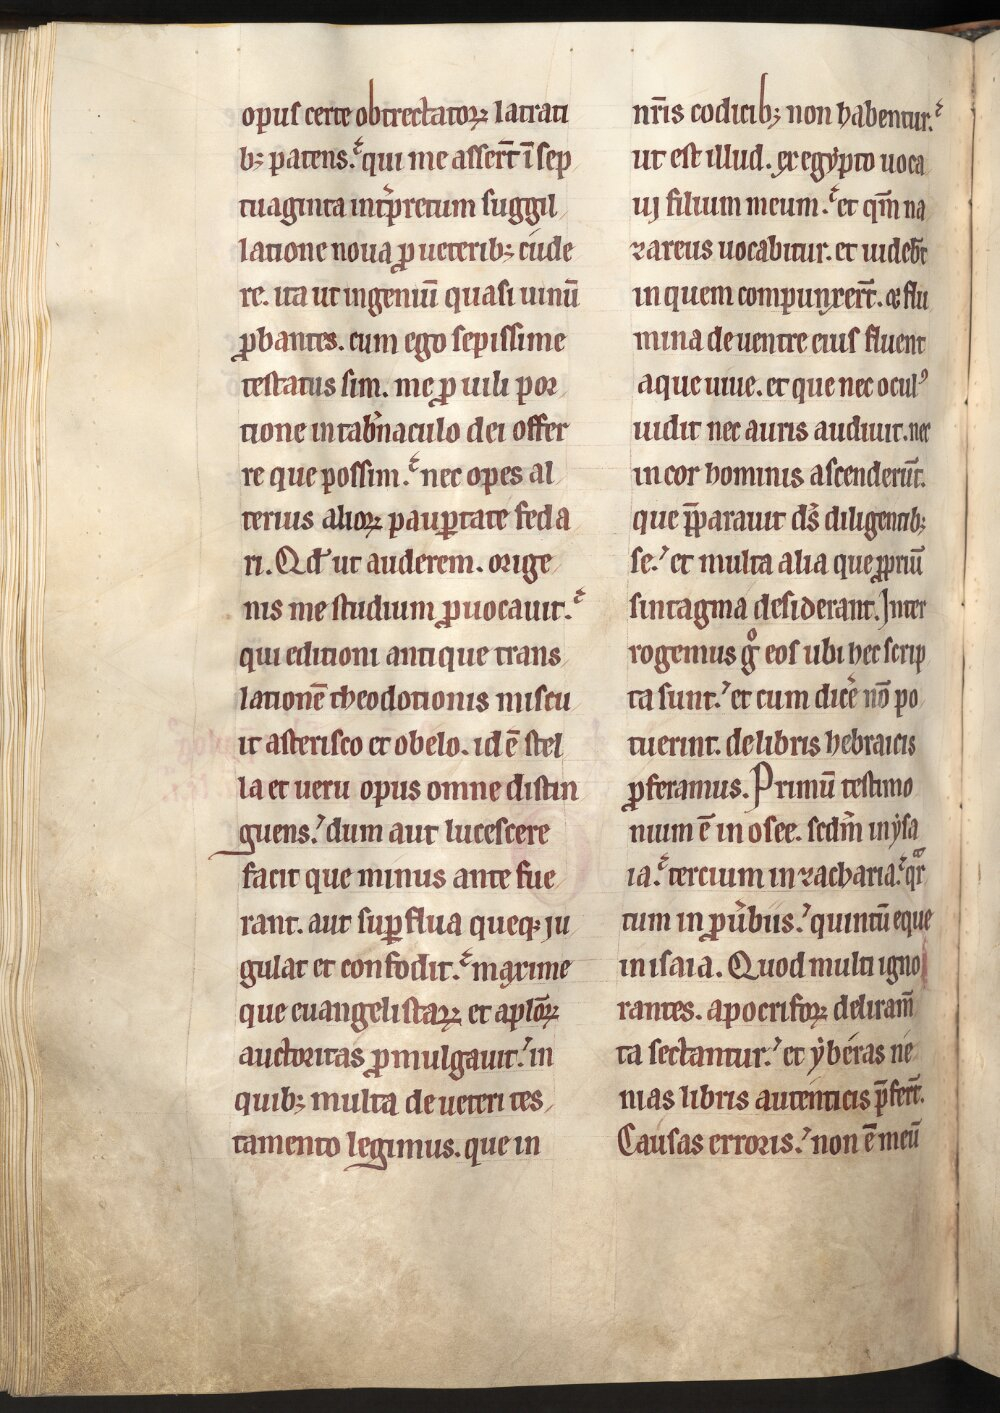 opus certe obtrectatoꝝ latrati
bꝫ patens. qui me asser̄t ī sep
tuaginta int̾pretum suggil
latione noua ꝓ ueteribꝫ cude
re. ita ut ingeniū quasi uinū
ꝓbantes. cum ego sepissime
testatus sim. me ꝓ uili por
tione in tab̾naculo dei offer
re que possim. nec opes al
terius alioꝝ paup̱tate feda
ri. Qd̾ ut auderem. orige
nis me studium ꝓuocauit.
qui editioni antique trans
lationē theodotionis miscu
it asterisco et obelo. id ē stel
la et ueru opus omne distin
guens. dum aut lucescere
facit que minus ante fue
rant. aut suꝑflua queqꝫ ju
gulat et confodit. maxime
que euangelistaꝝ et aplōꝝ
auctoritas ꝓmulgauit. in
quibꝫ multa de ueteri tes
tamento legimus. que in
nr̄is codicibꝫ non habentur.
ut est illud. ex egypto uoca
uj filium meum. et qm̄ na
zareus uocabitur. et uideb̄t
in quem compunxer̄t. & flu
mina de uentre eius fluent
aque uiue. et que nec oculꝰ
uidit nec auris audiuit. nec
in cor hominis ascenderūt.
que p̄parauit ds̄ diligentibꝫ
se. et multa alia que ꝓpriū
sintagma desiderant. Inter
rogemus gͦ eos ubi hec scrip
ta sunt. et cum dic̾e nō po
tuerint. de libris hebraicis
ꝓferamus. Primū testimo
nium ē in osee. scdm̄ in ysa
ia. tercium in zacharia. qr̄
tum in ꝓu̾biis. quintū eque
in isaia. Quod multi igno
rantes. apocrifoꝝ deliram̄
ta sectantur. et yberas ne
nias libris autenticis p̄fer̄t.
Causas erroris. non ē meū